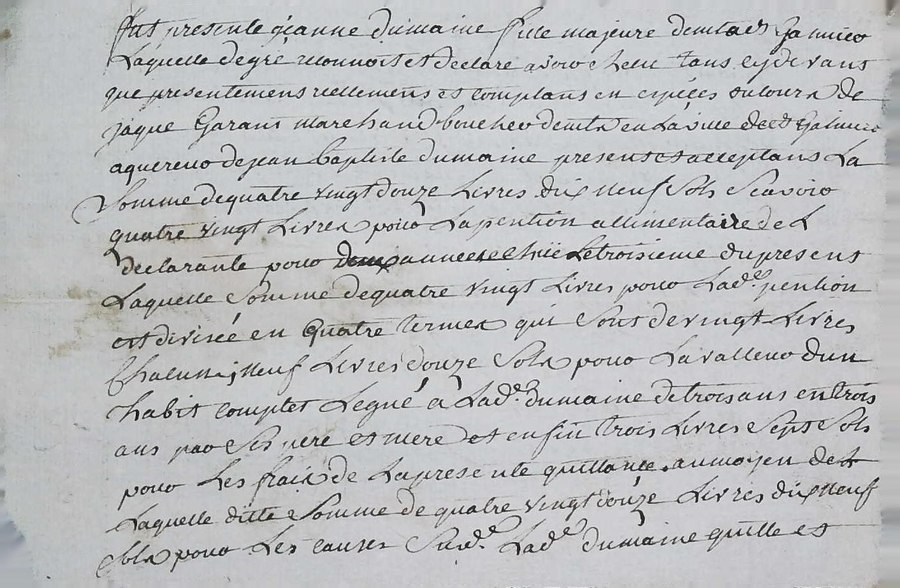 fut presente jeanne dumaine fille majeure demt a st Galmier
Laquelle de gré reconnoit et declare avoir heu tans cy devans
que presentemens reellemens et comptans en espéces du cours de
jaque Garans marchand boucher demt en La ville de st Galmier
aquereur de jean baptiste dumaine presens et acceptans La
Somme de quatre vingt douze Livres dix Neuf Sols Scavoir
quatre vingt Livres pour La pention allimentaire de L
declarante pour année echüe Le troisieme du presens
Laquelle Somme de quatre vingt Livres pour Lad.e pention
est divisée en quatre termes qui Sont de vingt Livres
Chalcun; Neuf Livres douze Sols pour La valleur dun
habit complet Legué à Lad.e dumaine de trois ans en trois
ans par Ses pere et mere et enfin trois Livres Sept Sols
pour Les frais de La presente quittance. au moyen de
Laquelle ditte Somme de quatre vingt douze Livres dix Neuf
Sols pour Les causes Susd.es Lad.e dumaine quitte et